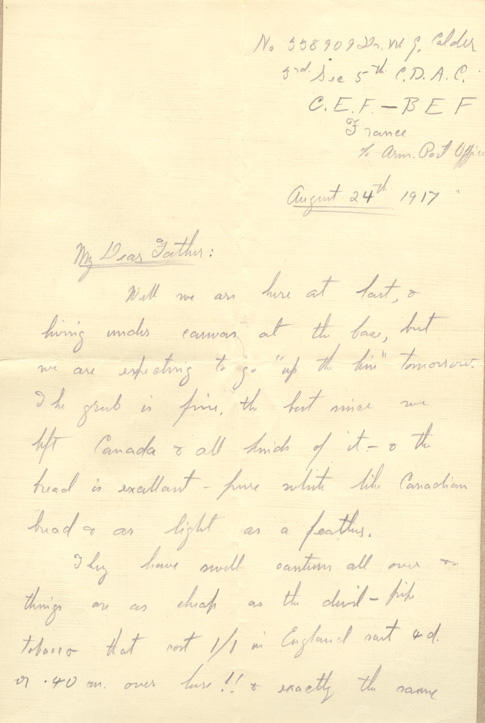 No 338909 Dr. W G. Calder
3rd Sec 5th C.D.A.C.
C.E.F. - B E F
France
c/o Arm. Post Office
August 24th 1917
My Dear Father:
Well we are here at last, &
living under canvas at the base, but
we are expecting to go "up the line" tomorrow.
The grub is fine, the best since we
left Canada & all kinds of it - & the
bread is excellant - pure white like Canadian
bread & as light as a feather.
They have swell canteens all over &
things are as cheap as the devil - pipe
tobacco that cost 1/1 in England cost 4d.
or .40 over here!! & exactly the same